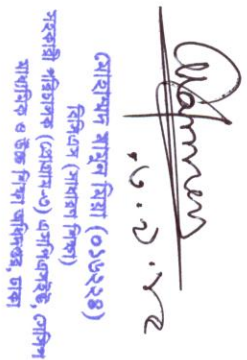 মোহাম্মদ মামুন মিয়া (০১৬২২৪)
বিসিএস (সাধারণ শিক্ষা)
সহকারী পরিচালক (প্রোগ্রাম-৩) সেসিপ
মাধ্যমিক ও উচ্চ শিক্ষা অধিদপ্তর, ঢাকা